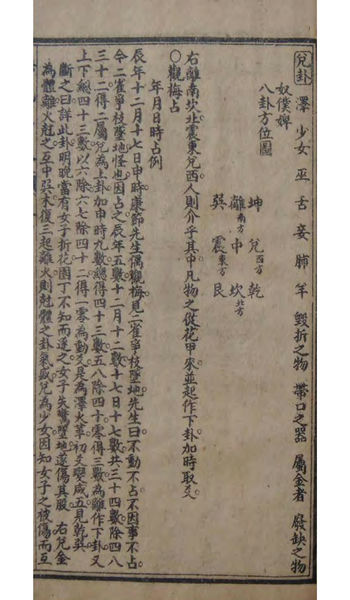 兌卦 澤 少女 巫 舌 妾 肺 羊 毀折之物 帶口之器 屬金者 廢缺之物
奴僕婢
八卦方位圖
坤 兌西方 乾
離南方 中 坎北方
巽 震東方 艮
右離南坎北震東兌西人則介乎其中凡物之從花甲來並起作下卦加時取爻
年月日時占例
○觀梅占
辰年十二月十七日申時康節先生偶觀梅見二雀爭枝墜地先生曰不動不占不因事不占
今二雀爭枝墜地怪也因占之辰年五數十二月十二數十七日十七數共三十四數除四八
三十二得二屬兌為上卦加申時九數總得四十三數五八除四十零得三數為離作下卦又
上下總四十三數以六除六七除四十二得一零為動爻是為澤火革初爻變咸互見乾巽
斷之曰詳此卦明晚當有女子折花園丁不知而逐之女子失驚墜地遂傷其股 右兌金
為體離火尅之互中巽木復三起離火則尅體之卦氣盛兌為少女因知女子之被傷而互